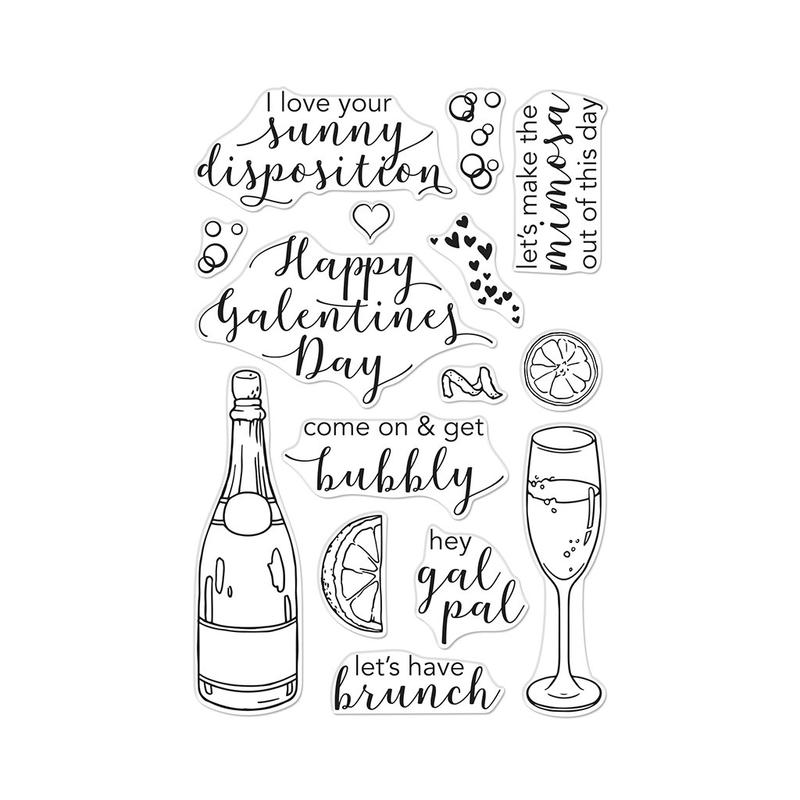 I love your
sunny
disposition
let's make the
mimosa
out of this day
Happy
Galentines
Day
come on & get
bubbly
hey
gal
pal
let's have
brunch